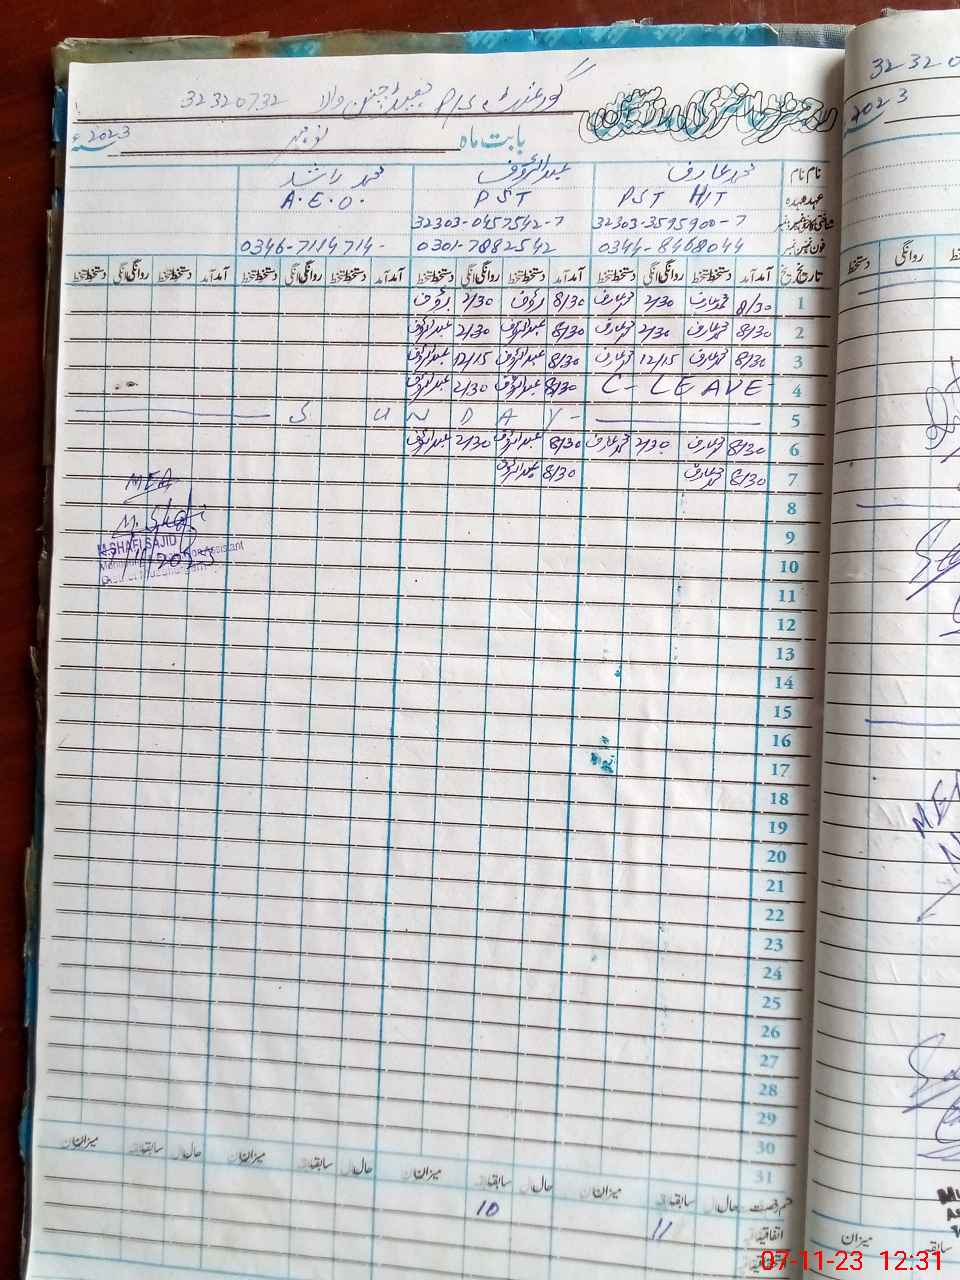 32320732 P/S
بابت ماہ نومبر 2023ء
نام محمد عارف عبدالرؤف محمد راشد
عہدہ PST H/T PST A.E.O.
32303-3595900-7 32303-0457542-7
فون نمبر 0344-8468044 0301-7882542 0346-7114714-
تاریخ آمد دستخط روانگی دستخط آمد دستخط روانگی دستخط آمد دستخط روانگی دستخط آمد دستخط روانگی دستخط
1 8/30 محمد عارف 2/30 محمد عارف 8/30 رؤف 2/30 رؤف
2 8/30 محمد عارف 2/30 محمد عارف 8/30 عبدالرؤف 2/30 عبدالرؤف
3 8/30 محمد عارف 12/15 محمد عارف 8/30 عبدالرؤف 12/15 عبدالرؤف
4 C-LEAVE 8/30 عبدالرؤف 2/30 عبدالرؤف
5 SUNDAY-
6 8/30 محمد عارف 2/30 محمد عارف 8/30 عبدالرؤف 2/30 عبدالرؤف
7 8/30 محمد عارف 8/30 عبدالرؤف
MEA
M. SHAFI SAJID
8
9
10
11
12
13
14
15
16
17
18
19
20
21
22
23
24
25
26
27
28
29
30
31
حال سابقہ میزان حال سابقہ میزان حال سابقہ میزان حال سابقہ میزان
اتفاقیہ 11 10
32320
2023
دستخط روانگی
MEA
میزان سابقہ
07-11-23 12:31